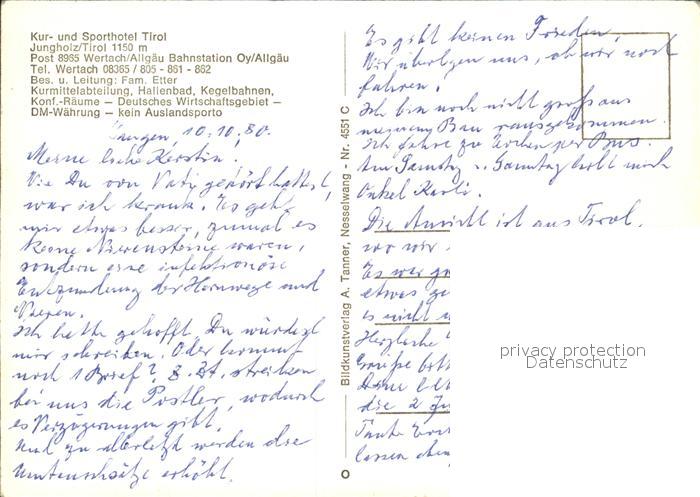 Kur- und Sporthotel Tirol
Jungholz/Tirol 1150 m
Post 8965 Wertach/Allgäu Bahnstation Oy/Allgäu
Tel. Wertach 08365 / 805 - 861 - 862
Bes. u. Leitung: Fam. Etter
Kurmittelabteilung, Hallenbad, Kegelbahnen,
Konf.-Räume — Deutsches Wirtschaftsgebiet —
DM-Währung — kein Auslandsporto
10.10.80.
Meine liebe Kerstin!
Wie Du von Vati gehört hattest,
war ich krank. Es geht
mir etwas besser, zumal es
keine Nierensteine waren,
sondern eine infektionöse
Entzündung der Harnwege und
Nieren.
Ich hatte gehofft, Du würdest
mir schreiben. Oder kommt
noch 1 Brief? Z. Zt. streiken
bei uns die Postler, wodurch
es Verzögerungen gibt.
Und zu allerletzt werden die
erhöht.
Bildkunstverlag A. Tanner, Nesselwang - Nr. 4551 C
Es gibt keinen Frieden.
Wir überlegen uns, ob wir noch
fahren.
Ich bin noch nicht groß aus
meinem Bau rausgekommen.
Ich fahre zu per Bus.
Am Samstag holt mich
Onkel
Die Ansicht ist aus Tirol,
wo wir
Es war
etwas
es nicht
Herzliche
Grüße
Deine
die 2
Tante
lassen
privacy protection
Datenschutz